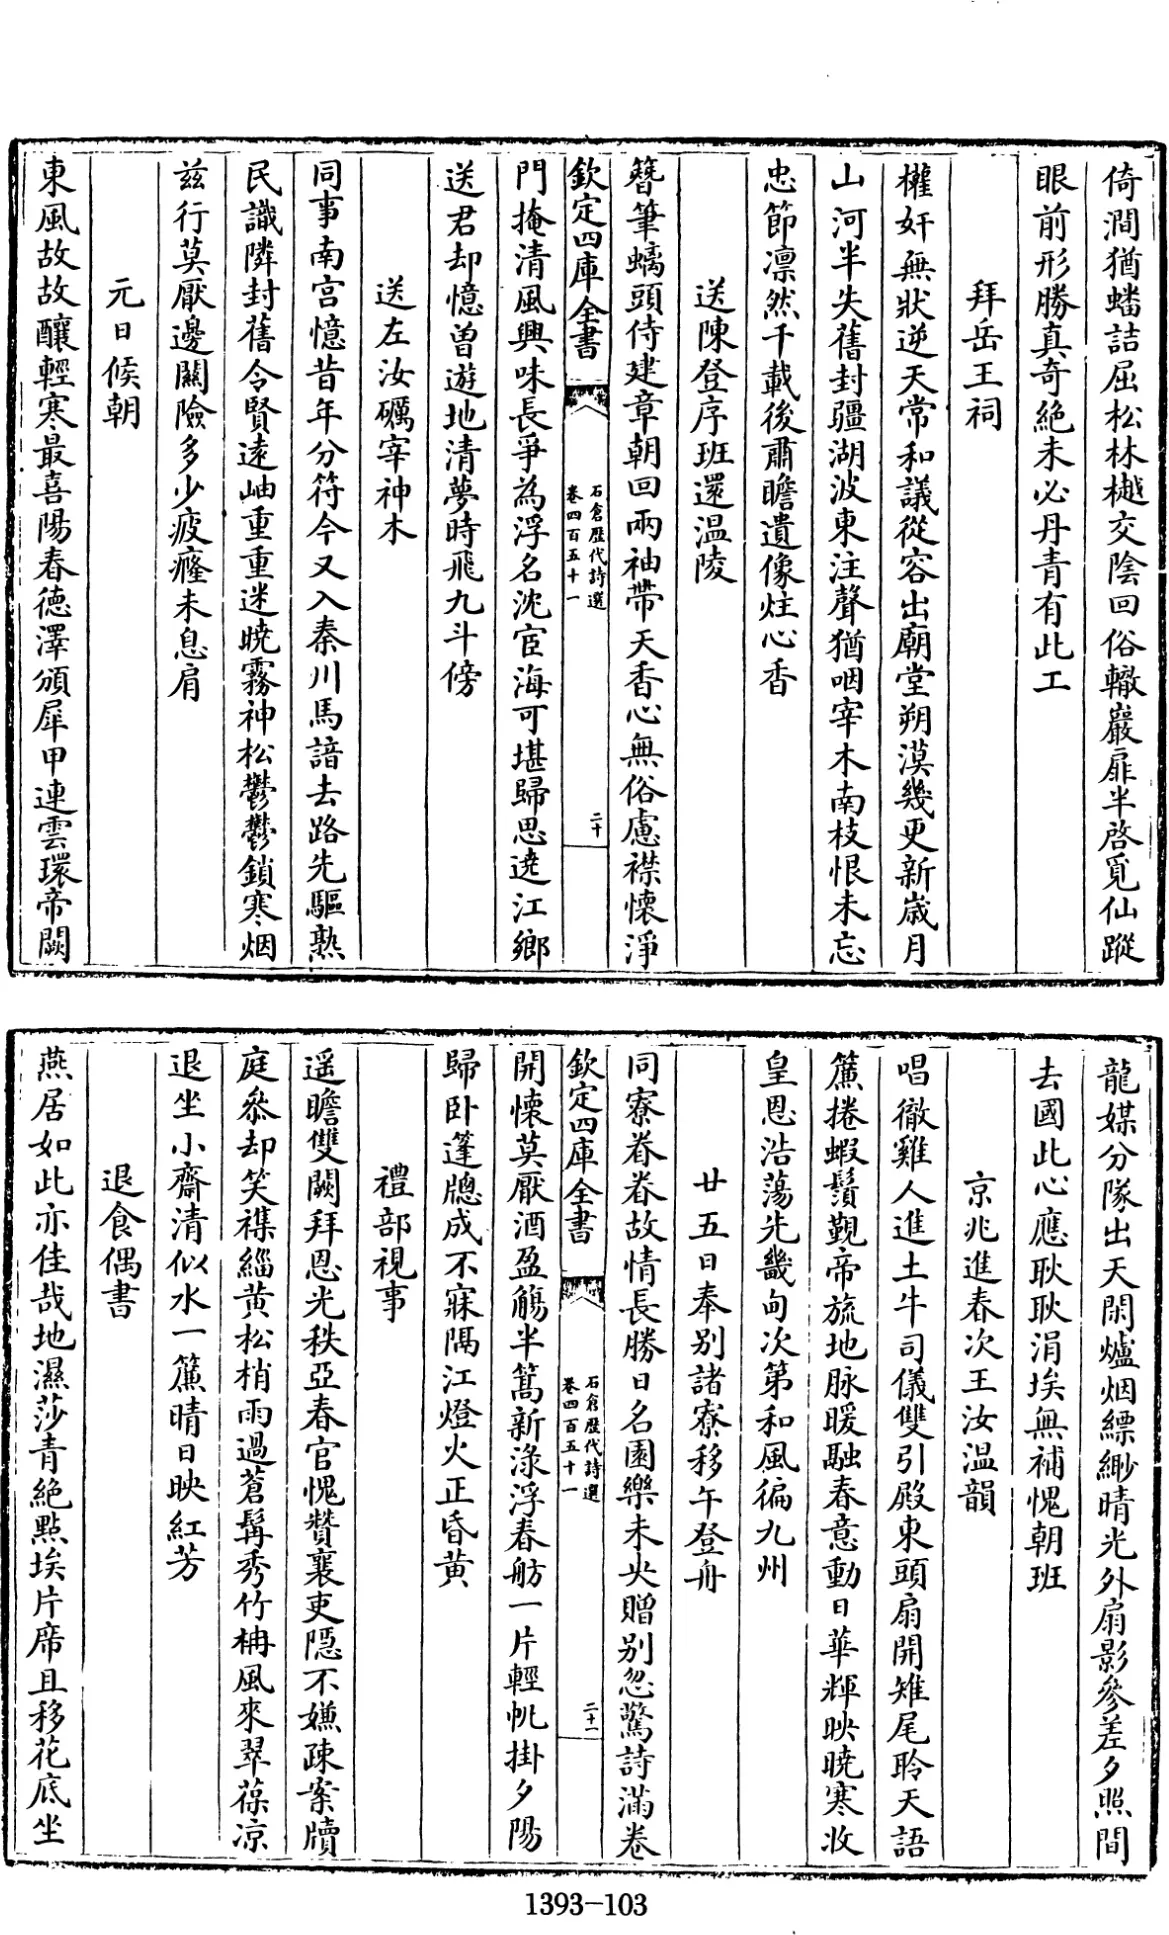 倚澗猶蟠詰屈松林樾交陰回俗轍巖扉半啓覓仙蹤
眼前形勝真奇絶未必丹青有此工
拜岳王祠
權奸無狀逆天常和議從容出廟堂朔漠幾更新歲月
山河半失舊封疆湖波東注聲猶咽宰木南枝恨未忘
忠節凛然千載後肅瞻遺像炷心香
送陳登序班還温陵
簪筆螭頭侍建章朝回兩袖帶天香心無俗慮襟懷淨
欽定四庫全書
石倉歴代詩選
卷四百五十一
二十
門掩清風興味長爭為浮名沈宦海可堪歸思遶江鄉
送君却憶曽遊地清夢時飛九斗傍
送左汝礪宰神木
同事南宮憶昔年分符今又入秦川馬諳去路先驅熟
民識隣封舊令賢逺岫重重迷曉霧神松鬱鬱鎖寒烟
兹行莫厭邊闗險多少疲癃未息肩
元日候朝
東風故故釀輕寒最喜陽春德澤頒犀甲連雲環帝闕
龍媒分隊出天閑爐烟縹緲晴光外扇影參差夕照間
去國此心應耿耿涓埃無補愧朝班
京兆進春次王汝温韻
唱徹雞人進土牛司儀雙引殿東頭扇開雉尾聆天語
簾捲蝦鬚覲帝旒地脉暖融春意動日華輝映曉寒收
皇恩浩蕩先畿甸次第和風徧九州
廿五日奉别諸寮移午登舟
同寮眷眷故情長勝日名園樂未央贈别忽驚詩滿卷
欽定四庫全書
石倉歴代詩選
卷四百五十一
二十一
開懷莫厭酒盈觴半篙新淥浮春舫一片輕帆掛夕陽
歸卧篷牕成不寐隔江燈火正昏黄
禮部視事
遥瞻雙闕拜恩光秩亞春官愧贊襄吏隱不嫌疎案牘
庭叅却笑襍緇黄松梢雨過蒼髯秀竹柟風來翠葆凉
退坐小齋清似水一簾晴日映紅芳
退食偶書
燕居如此亦佳哉地濕莎青絶點埃片席且移花底坐
1393-103